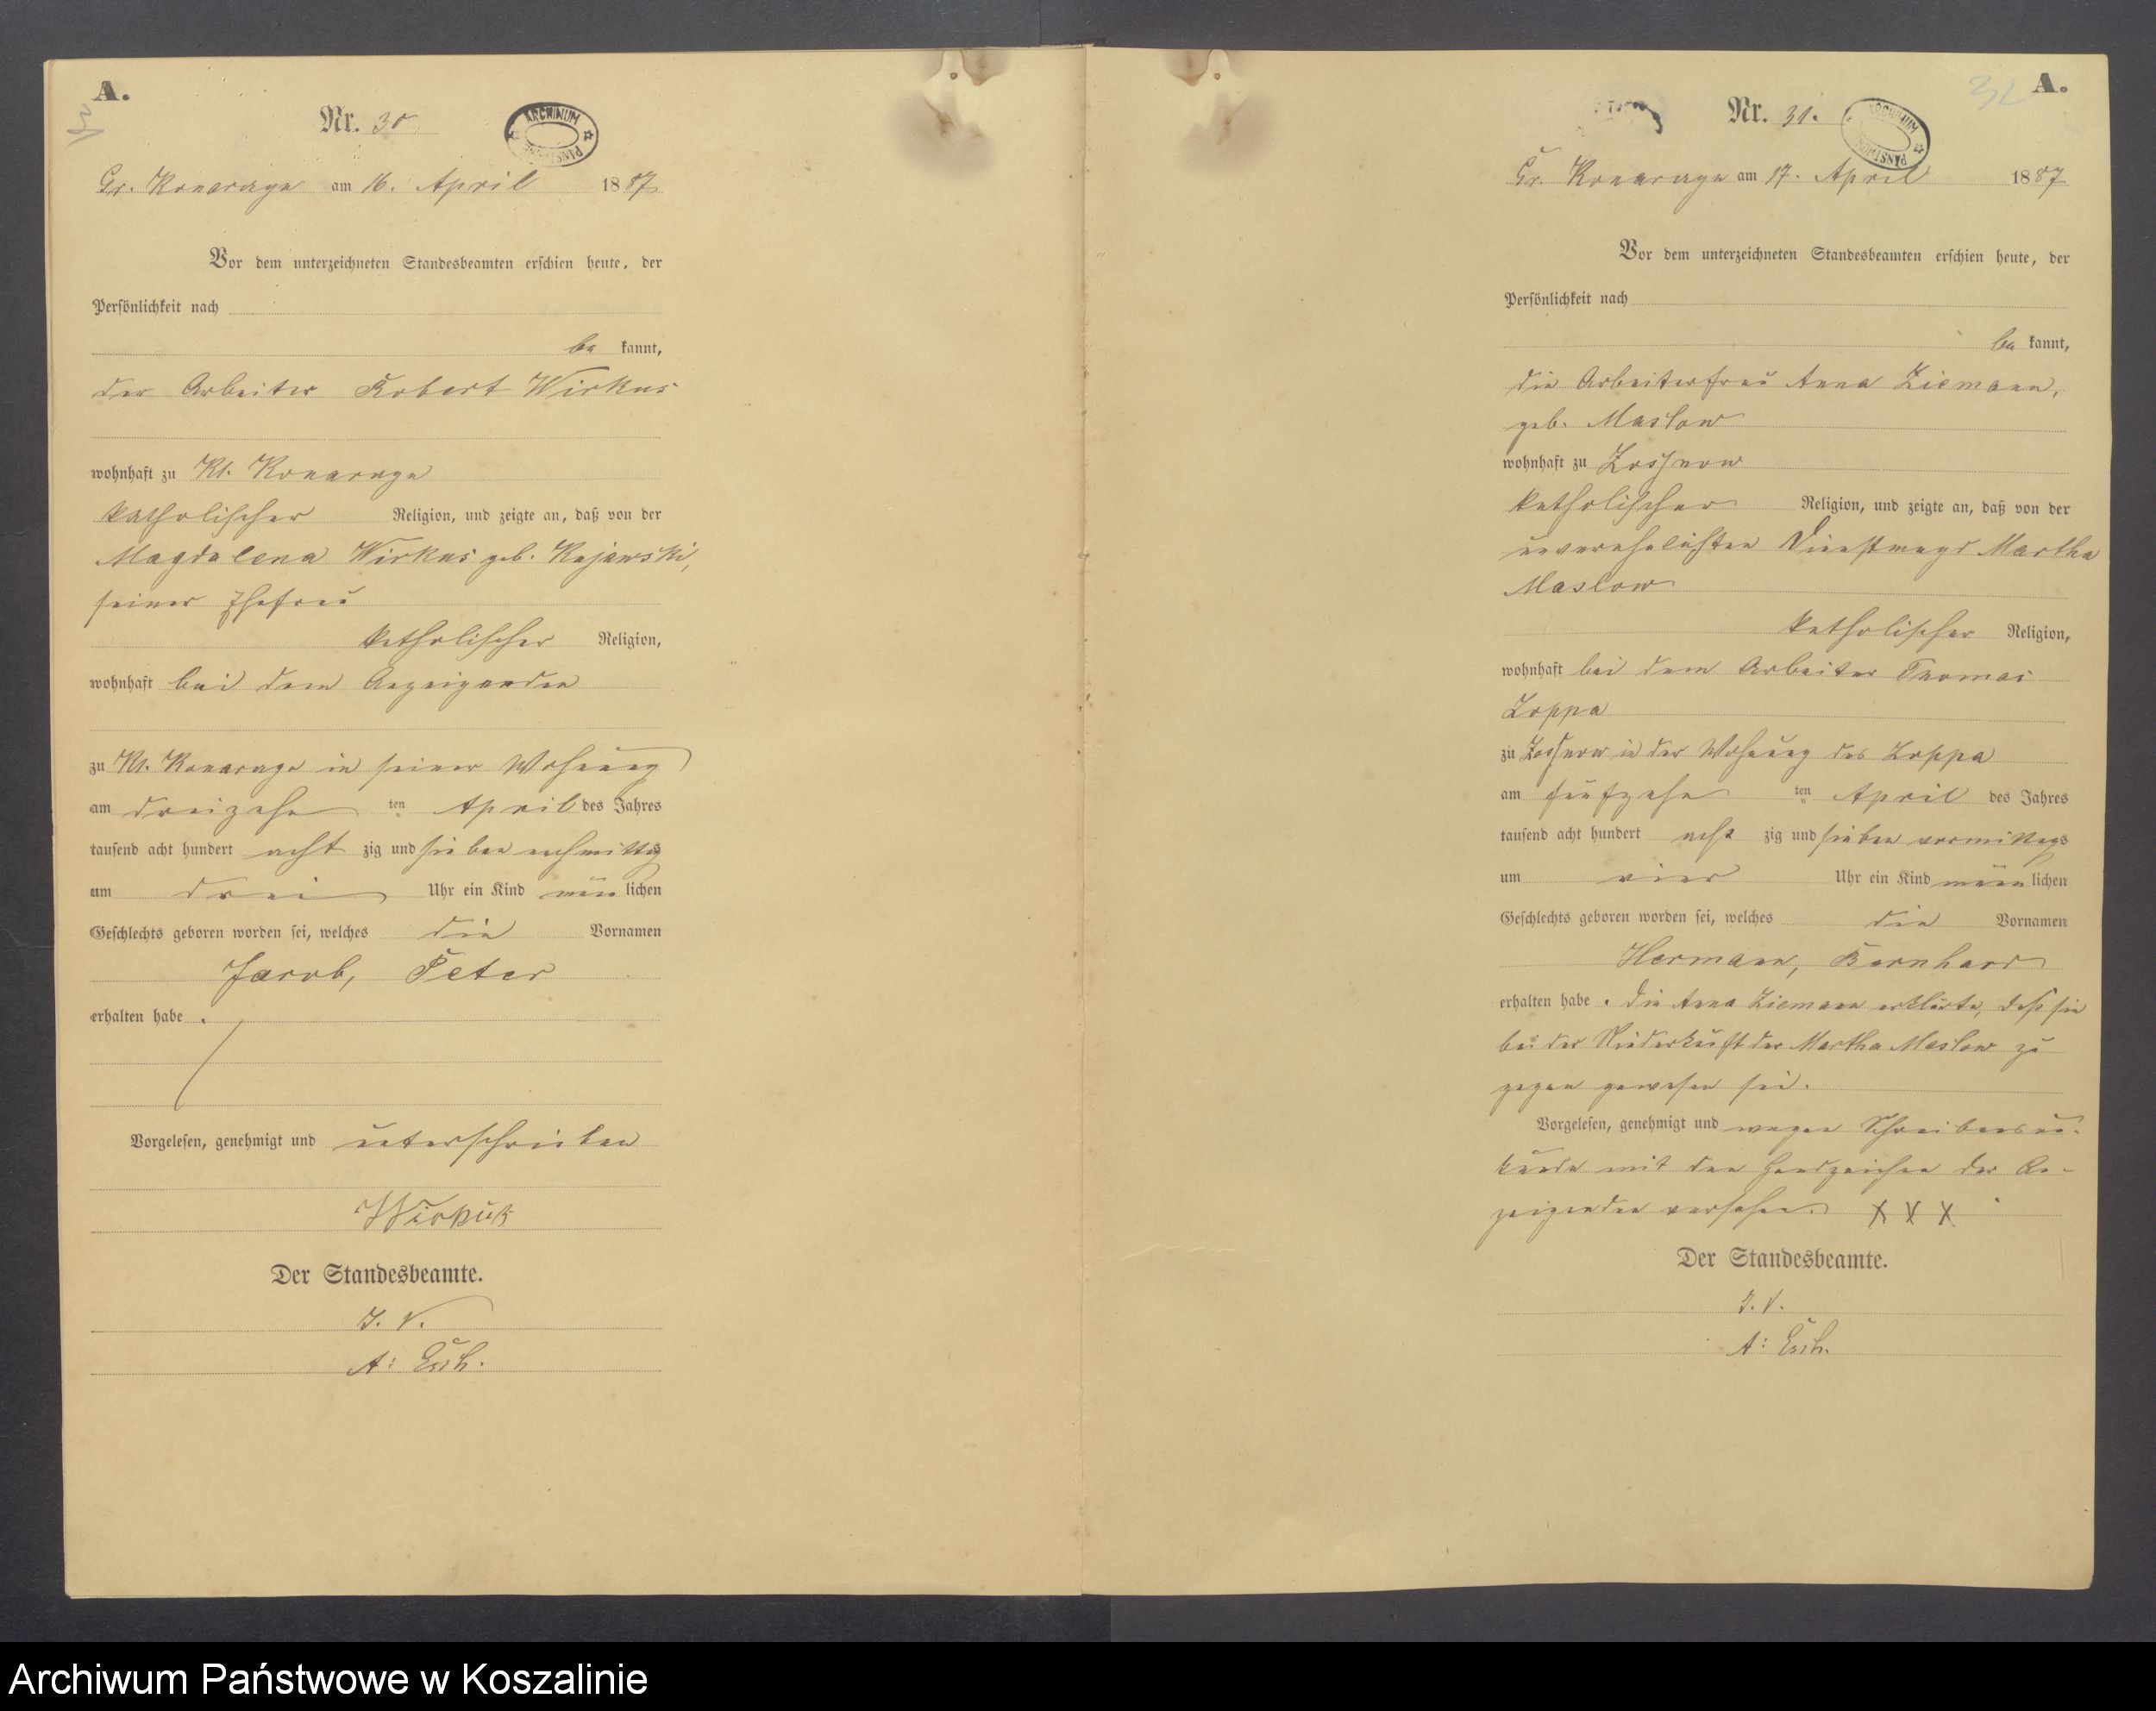 A.
Nr. 30
ARCHIWUM PAŃSTWOWE
Gr. Konarczyn am 16. April 1887
Vor dem unterzeichneten Standesbeamten erschien heute, der
Persönlichkeit nach
be kannt,
der Arbeiter Robert Wirkus
wohnhaft zu Kl. Konarczyn
katholischer Religion, und zeigte an, daß von der
Magdalena Wirkus geb. Kujawski,
seiner Ehefrau
katholischer Religion,
wohnhaft bei dem Anzeigenden
zu Kl. Konarczyn in seiner Wohnung
am dreizehn ten April des Jahres
tausend acht hundert acht zig und sieben nachmittags
um drei Uhr ein Kind männ lichen
Geschlechts geboren worden sei, welches die Vornamen
Jacob, Peter
erhalten habe.
Vorgelesen, genehmigt und unterschrieben
Wirkus
Der Standesbeamte.
I. V.
32 A.
Nr. 31.
ARCHIWUM PAŃSTWOWE
Gr. Konarczyn am 17. April 1887
Vor dem unterzeichneten Standesbeamten erschien heute, der
Persönlichkeit nach
be kannt,
die Arbeiterfrau Anna Ziemann,
geb. Maslow
wohnhaft zu
katholischer Religion, und zeigte an, daß von der
unverehelichten Dienstmagd Martha
Maslow
katholischer Religion,
wohnhaft bei dem Arbeiter Thomas
Zoppa
zu in der Wohnung des Zoppa
am fünfzehn ten April des Jahres
tausend acht hundert acht zig und sieben vormittags
um vier Uhr ein Kind männ lichen
Geschlechts geboren worden sei, welches die Vornamen
Hermann, Bernhard
erhalten habe. Die Anna Ziemann erklärte, daß sie
bei der Niederkunft der Martha Maslow zu
gegen gewesen sei.
Vorgelesen, genehmigt und wegen Schreibensun-
kunde mit den Handzeichen der An-
zeigenden versehen. X X X
Der Standesbeamte.
I. V.
Archiwum Państwowe w Koszalinie